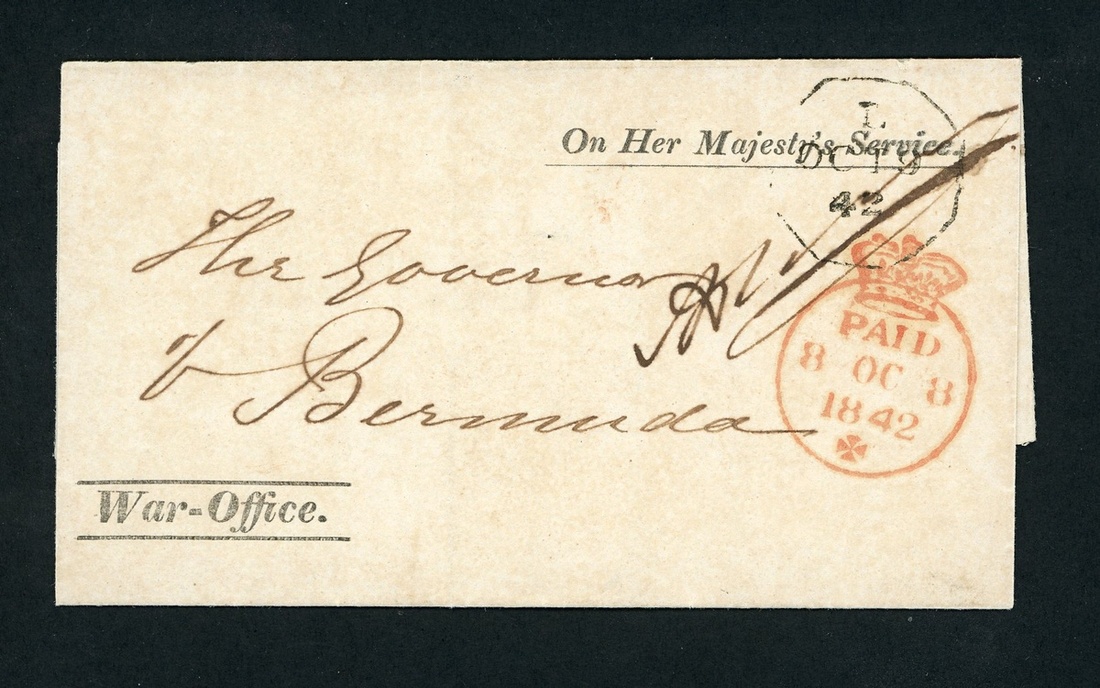 On Her Majesty's Service.
L
OC 18
42
The Governor
of Bermuda
PAID
8 OC 8
1842
War-Office.